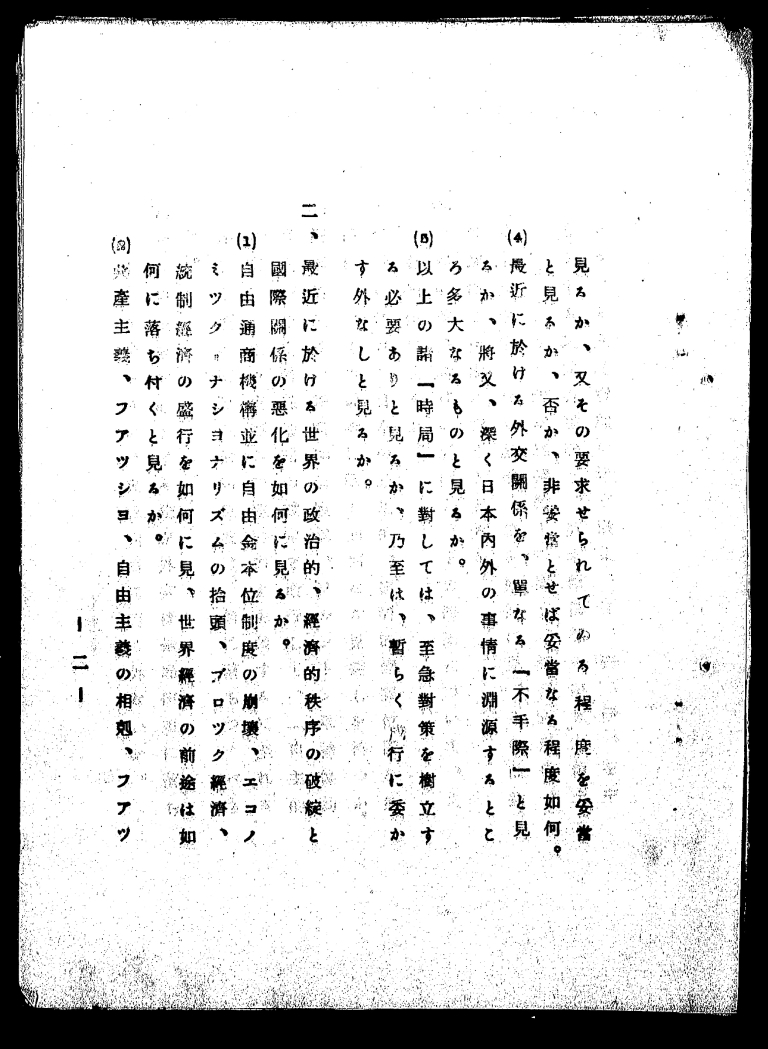 見るか、又その要求せられてゐる程度を妥當
と見るか、否か、非妥當とせば妥當なる程度如何。
(4) 最近に於ける外交關係を、單なる「不手際」と見
るか、將又、深く日本內外の事情に淵源するとこ
ろ多大なるものと見るか。
(5) 以上の諸「時局」に對しては、至急對策を樹立す
る必要ありと見るか、乃至は、暫らく行に委か
す外なしと見るか。
二、最近に於ける世界の政治的、經濟的秩序の破綻と
國際關係の惡化を如何に見るか。
(1) 自由通商機構並に自由金本位制度の崩壞、エコノ
ミツク・ナシヨナリズムの抬頭、ブロツク經濟、
統制經濟の盛行を如何に見、世界經濟の前途は如
何に落ち付くと見るか。
(2) 共產主義、フアツシヨ、自由主義の相剋、フアツ
ー二ー